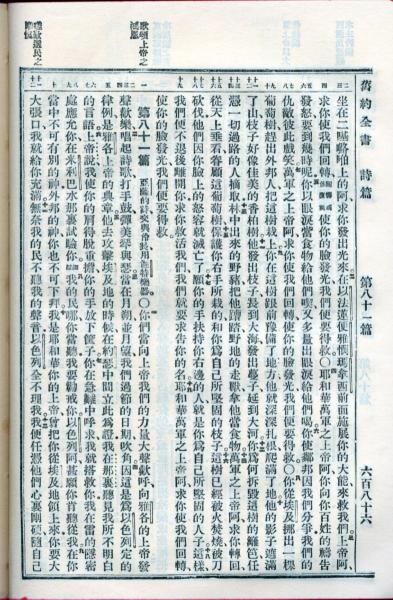 舊約全書 詩篇 第八十一篇 六百八十六
坐在二 上的阿求你發出光來在以法蓮便雅憫瑪拿西前面施展你的大能來救我們上帝阿
求你使我們回轉 使你的臉發光我們便要得救〇耶和華萬軍之上帝阿你向你百姓的禱告
發怒要到幾時呢你以眼淚當食物給他們喫又多量出眼淚給他們喝你使鄰邦因我們分爭我們的
仇敵彼此戲笑萬軍之上帝阿求你使我們回轉使你的臉發光我們便要得救〇你從埃及挪出一棵
葡萄樹趕出外邦人把這樹栽上你在這樹跟前豫備了地方他就深深扎根爬滿了地他的影子遮滿
了山枝子好像佳美的香柏樹他發出枝子長到大海發出蔓子延到大河爲何拆毀這樹的籬笆任
憑一切過路的人摘取林中出來的野豬把他蹧踏野地的走獸拿他當食物萬軍之上帝阿求你轉回
從天上垂看眷顧這葡萄樹保護你右手所栽的和你爲自己所堅固的枝子這樹已經被火焚燒被刀
砍伐他們因你臉上的怒容就滅亡了願你的手扶持你右邊的人就是你爲自己所堅固的人子這樣
我們便不退後離開你求你救活我們我們就要求告你的名耶和華萬軍之上帝阿求你使我們回轉
使你的臉發光我們便要得救
歌頌上帝之
第八十一篇 亞薩的詩交與伶長用迦特樂器〇你們當向上帝我們的力量大聲歡呼向雅各的上帝發
聲歡樂唱起詩歌打手鼓彈美琴與瑟當在月朔並月望我們過節的日期吹角因這是爲以色列定的
律例是雅各上帝的典章他去攻擊埃及地的時候在約瑟中間立此爲證我在那裏聽見我所不明白
的言語上帝說我使你的肩得脫重擔你的手放下筐子你在急難中呼求我就搭救你我在雷的隱密
處應允你在米利巴水那裏試驗你細拉我的民哪你當聽我要勸戒你以色列阿甚願你肯聽從我在你
當中不可有別的神外邦的神你也不可下拜我是耶和華你的上帝曾把你從埃及地領上來你要大
大張口我就給你充滿無奈我的民不聽我的聲音以色列全不理我我便任憑他們心裏剛硬隨自己